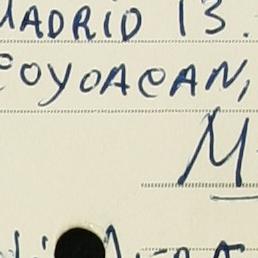 MADRID 13.
COYOACAN,
M